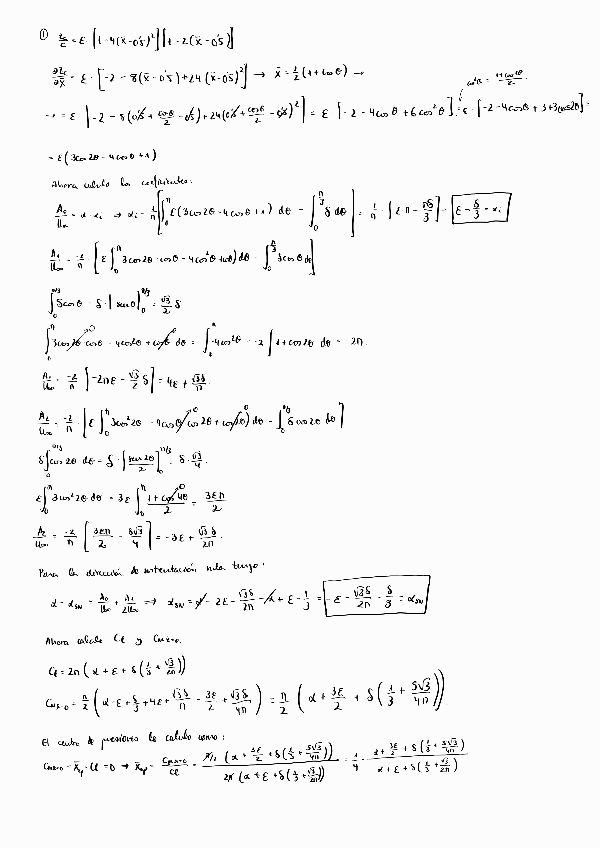 ① Zc/c = ε · [1 - 4(x̄ - 0'5)²][1 - 2(x̄ - 0'5)]
∂Zc/∂x̄ = ε · [-2 - 8(x̄ - 0'5) + 24(x̄ - 0'5)²] → x̄ = 1/2 (1 + cosθ) →
cos²θ = (1 + cos2θ)/2
→ = ε [-2 - 8(0'5 + cosθ/2 - 0'5) + 24(0'5 + cosθ/2 - 0'5)²] = ε [-2 - 4cosθ + 6cos²θ] = ε · [-2 - 4cosθ + 3 + 3cos2θ] =
= ε(3cos2θ - 4cosθ + 1)
Ahora calculo los coeficientes:
A₀/U∞ = α - αi → αi = 1/π [∫₀^π ε(3cos2θ - 4cosθ + 1) dθ - ∫₀^(π/3) δ dθ] = 1/π · [ε·π - πδ/3] = ε - δ/3 = αi
A₁/U∞ = -2/π [ε ∫₀^π 3cos2θ·cosθ - 4cos²θ + cosθ) dθ - ∫₀^(π/3) δcosθ dθ]
∫₀^(π/3) δcosθ = δ · [senθ]₀^(π/3) = √3/2 δ
∫₀^π 3cos2θ cosθ - 4cos²θ + cosθ dθ = ∫₀^π -4cos²θ = -2 ∫ 1 + cos2θ dθ = -2π.
A₁/U∞ = -2/π [-2πε - √3/2 δ] = 4ε + √3δ/π.
A₂/U∞ = -2/π [ε ∫₀^π 3cos²2θ - 4cosθ cos2θ + cos2θ) dθ - ∫₀^(π/3) δ cos2θ dθ]
δ∫₀^(π/3) cos2θ dθ = δ · [sen2θ/2]₀^(π/3) = δ · √3/4.
ε∫₀^π 3cos²2θ dθ = 3ε ∫₀^π (1 + cos4θ)/2 = 3επ/2
A₂/U∞ = -2/π [3επ/2 - δ√3/4] = -3ε + √3δ/2π.
Para la dirección de sustentación nula tengo:
α - αSN = A₀/U∞ + A₁/2U∞ → αSN = α - 2ε - √3δ/2π - α + ε - δ/3 = -ε - √3δ/2π - δ/3 = αSN
Ahora calculo Cl y Cmx=0.
Cl = 2π (α + ε + δ(1/3 + √3/2π))
Cmx=0 = π/2 (α - ε + δ/3 + 4ε + √3δ/π - 3ε/2 + √3δ/4π) = π/2 (α + 3ε/2 + δ(1/3 + 5√3/4π))
El centro de presiones lo calculo como:
Cmx=0 - x̄cp · Cl = 0 → x̄cp = Cmx=0/Cl = π/2 (α + 3ε/2 + δ(1/3 + 5√3/4π)) / 2π (α + ε + δ(1/3 + √3/2π)) = 1/4 · (α + 3ε/2 + δ(1/3 + 5√3/4π)) / (α + ε + δ(1/3 + √3/2π))